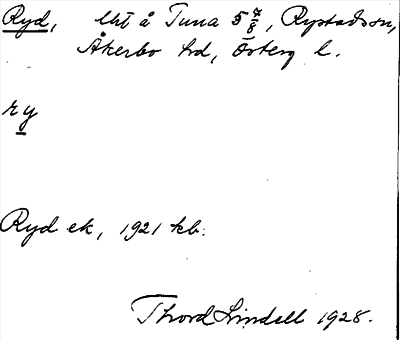 Ryd, lht å Tuna 5 7/8, Rystadssn,
Åkerbo hd, Österg l.
ry
Ryd ek, 1921 kb.
Thord Lindell 1928.